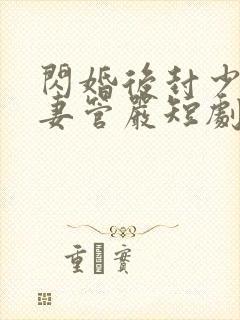 閃婚後封少
妻管嚴短劇
重實